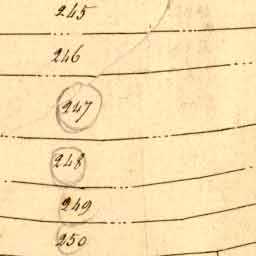 245
246
247
248
249
250